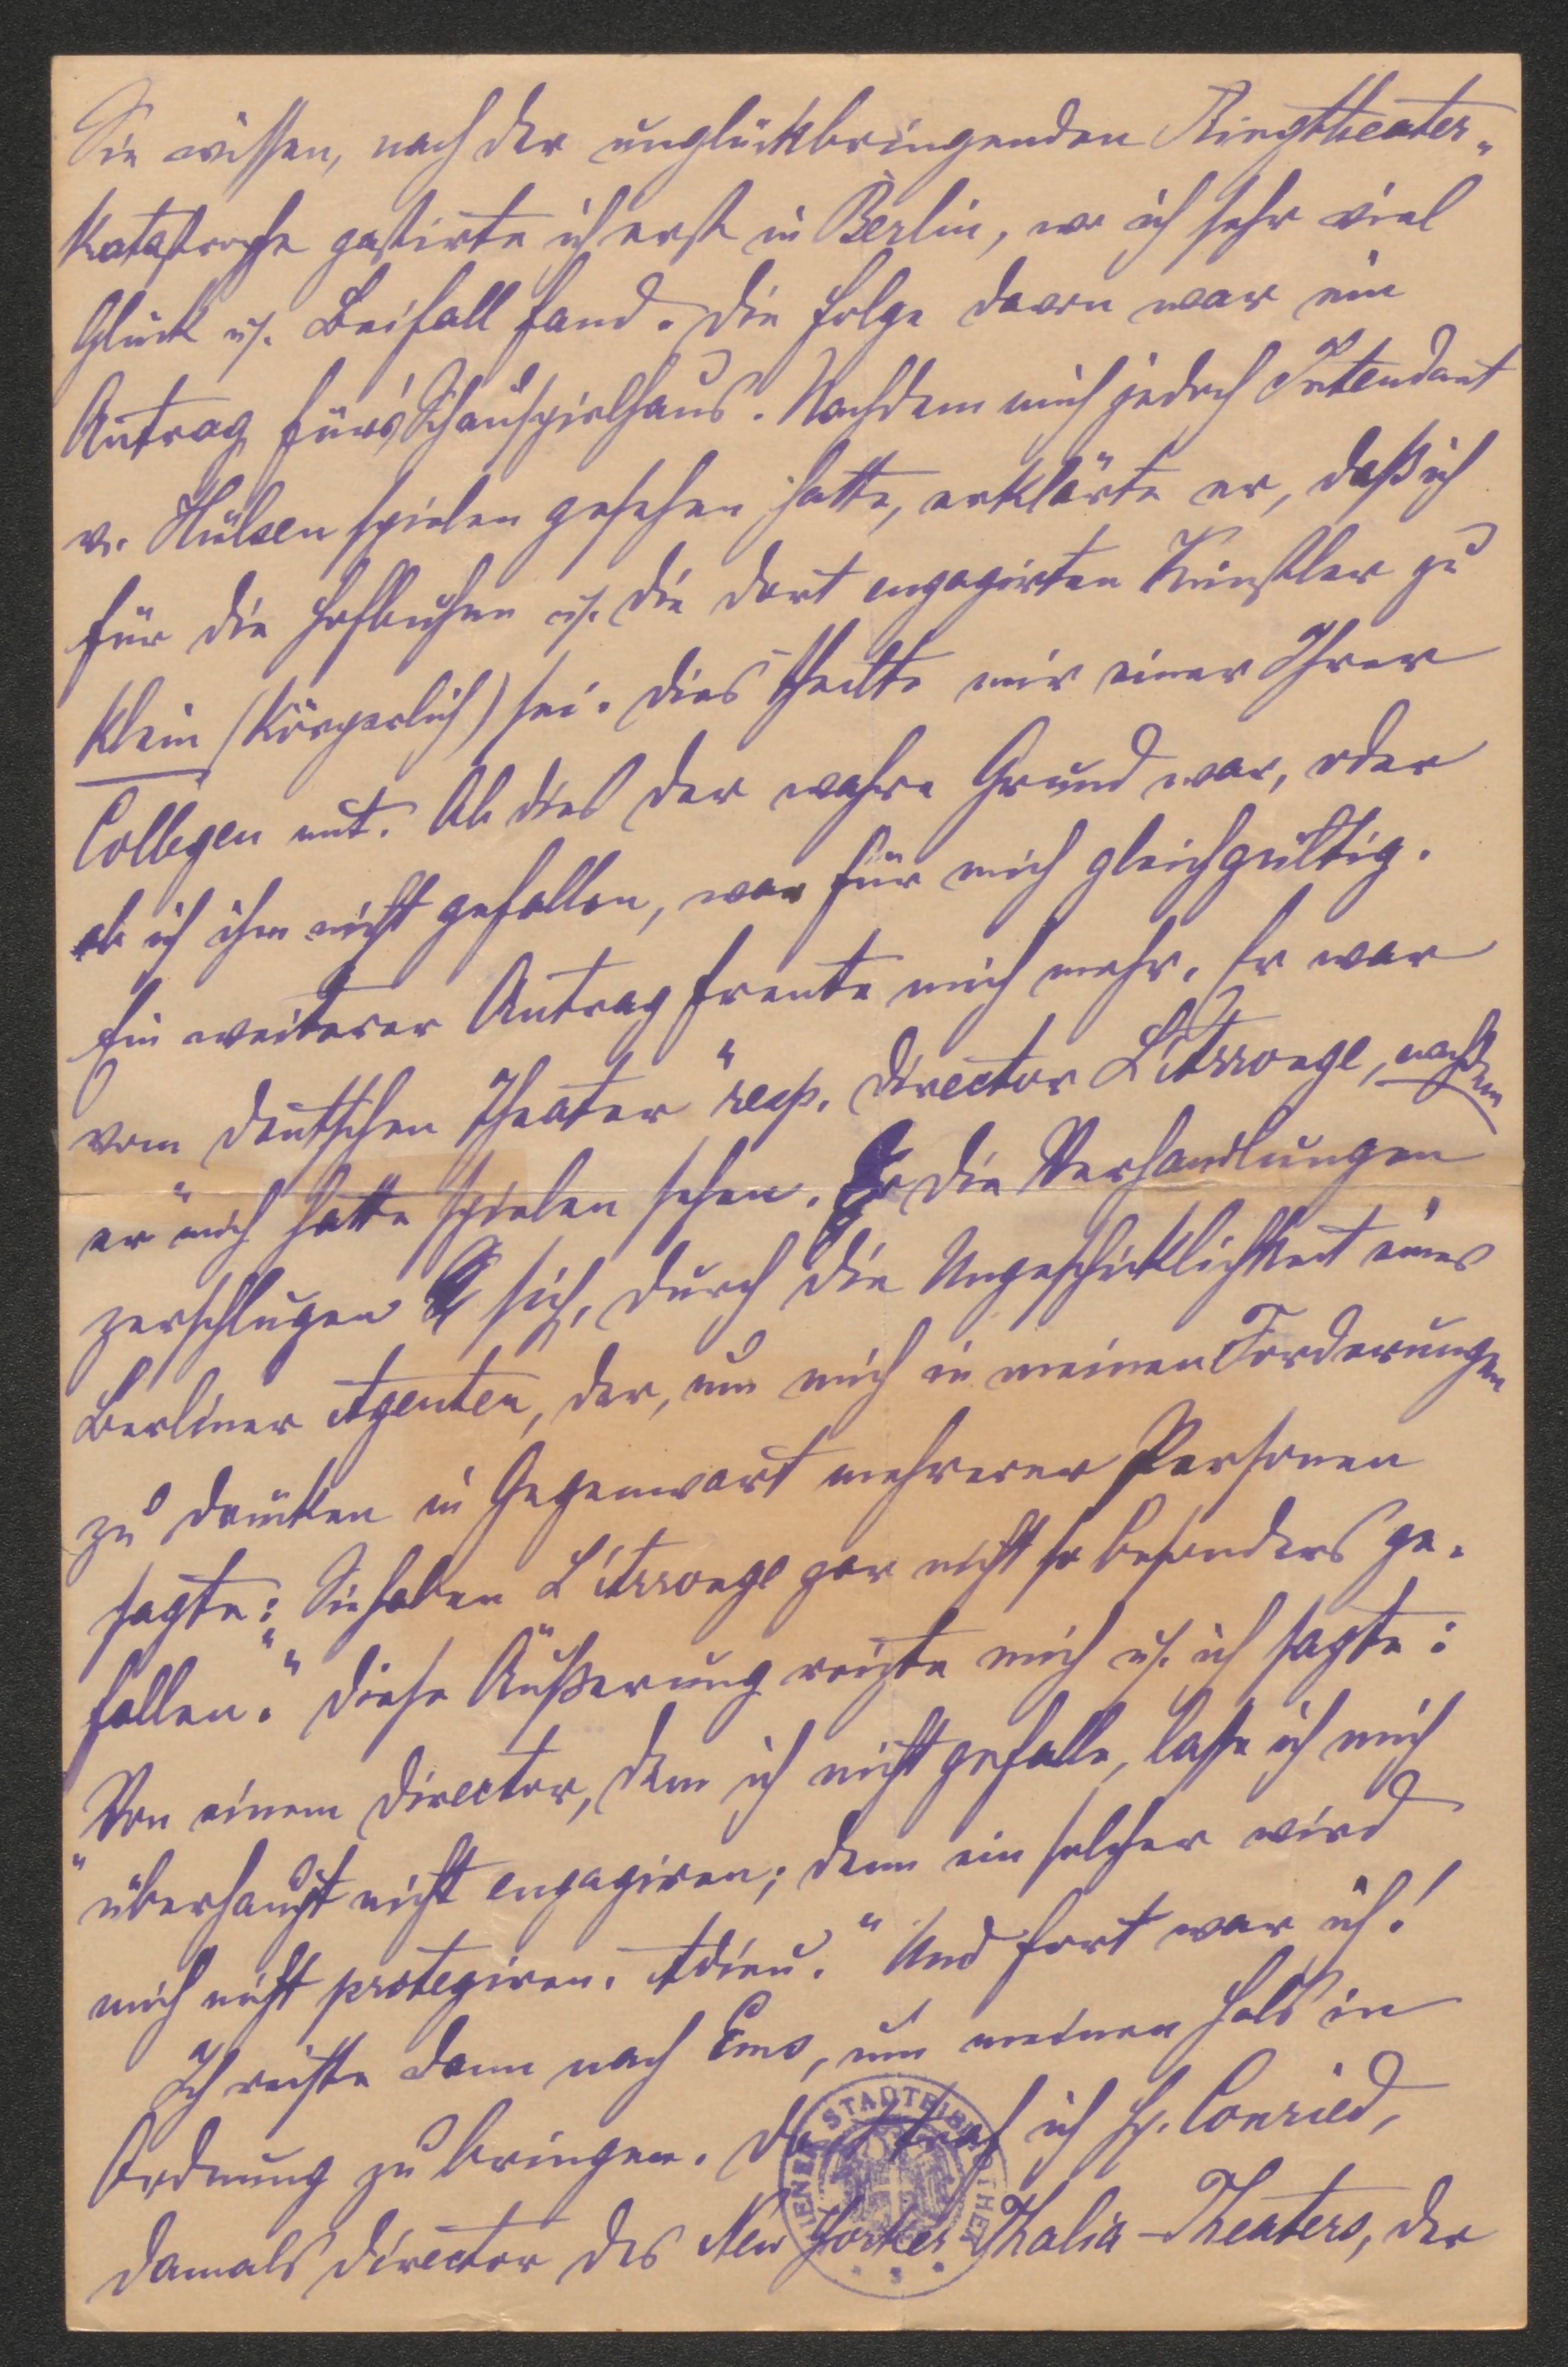 Sie wissen, nach der unglückbringenden Ringtheater-
Katastrophe gastirte ich erst in Berlin, wo ich sehr viel
Glück u. Beifall fand. Die Folge davon war ein
Antrag fürs Schauspielhaus. Nachdem mich jedoch Intendant
v. Hülsen spielen gesehen hatte, erklärte er, daß ich
für die Hofbühne u. die dort engagirten Künstler zu
klein (körperlich) sei. Dies theilte mir einer Ihrer
Collegen mit. Ob dies der wahre Grund war, oder
ob ich ihm nicht gefallen, war für mich gleichgültig.
Ein weiterer Antrag freute mich mehr. Er war
vom „deutschen Theater“ resp. Director L'Arronge, nachdem
er mich hatte spielen sehen. Die Verhandlungen
zerschlugen sich, durch die Ungeschicklichkeit eines
Berliner Agenten, der, um mich in meinen Forderungen
zu drücken in Gegenwart mehrerer Personen
sagte: „Sie haben L'Arronge gar nicht so besonders ge-
fallen.“ Diese Äußerung reizte mich u. ich sagte:
„Von einem Director, dem ich nicht gefalle, lasse ich mich
überhaupt nicht engagiren; denn ein solcher wird
mich nicht protegiren. Adieu.“ Und fort war ich!
Ich reiste dann nach Ems, um meinen Hals in
Ordnung zu bringen. Dort traf ich H. Conried,
damals Director des New Yorker Thalia-Theaters, der
WIENER STADTBIBLIOTHEK